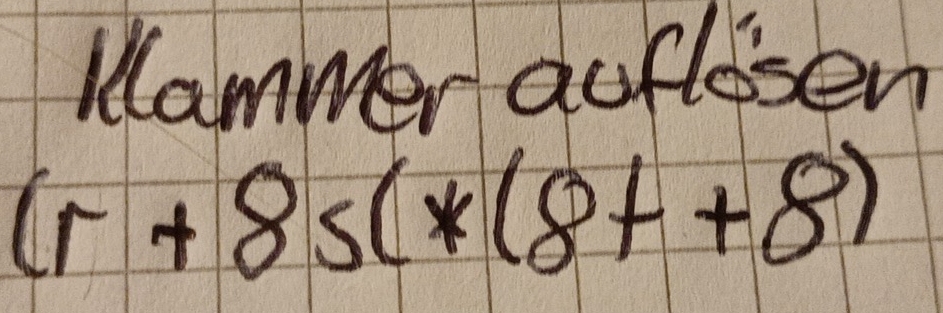 Klammer auflösen
(r + 8s(*(8t + 8)